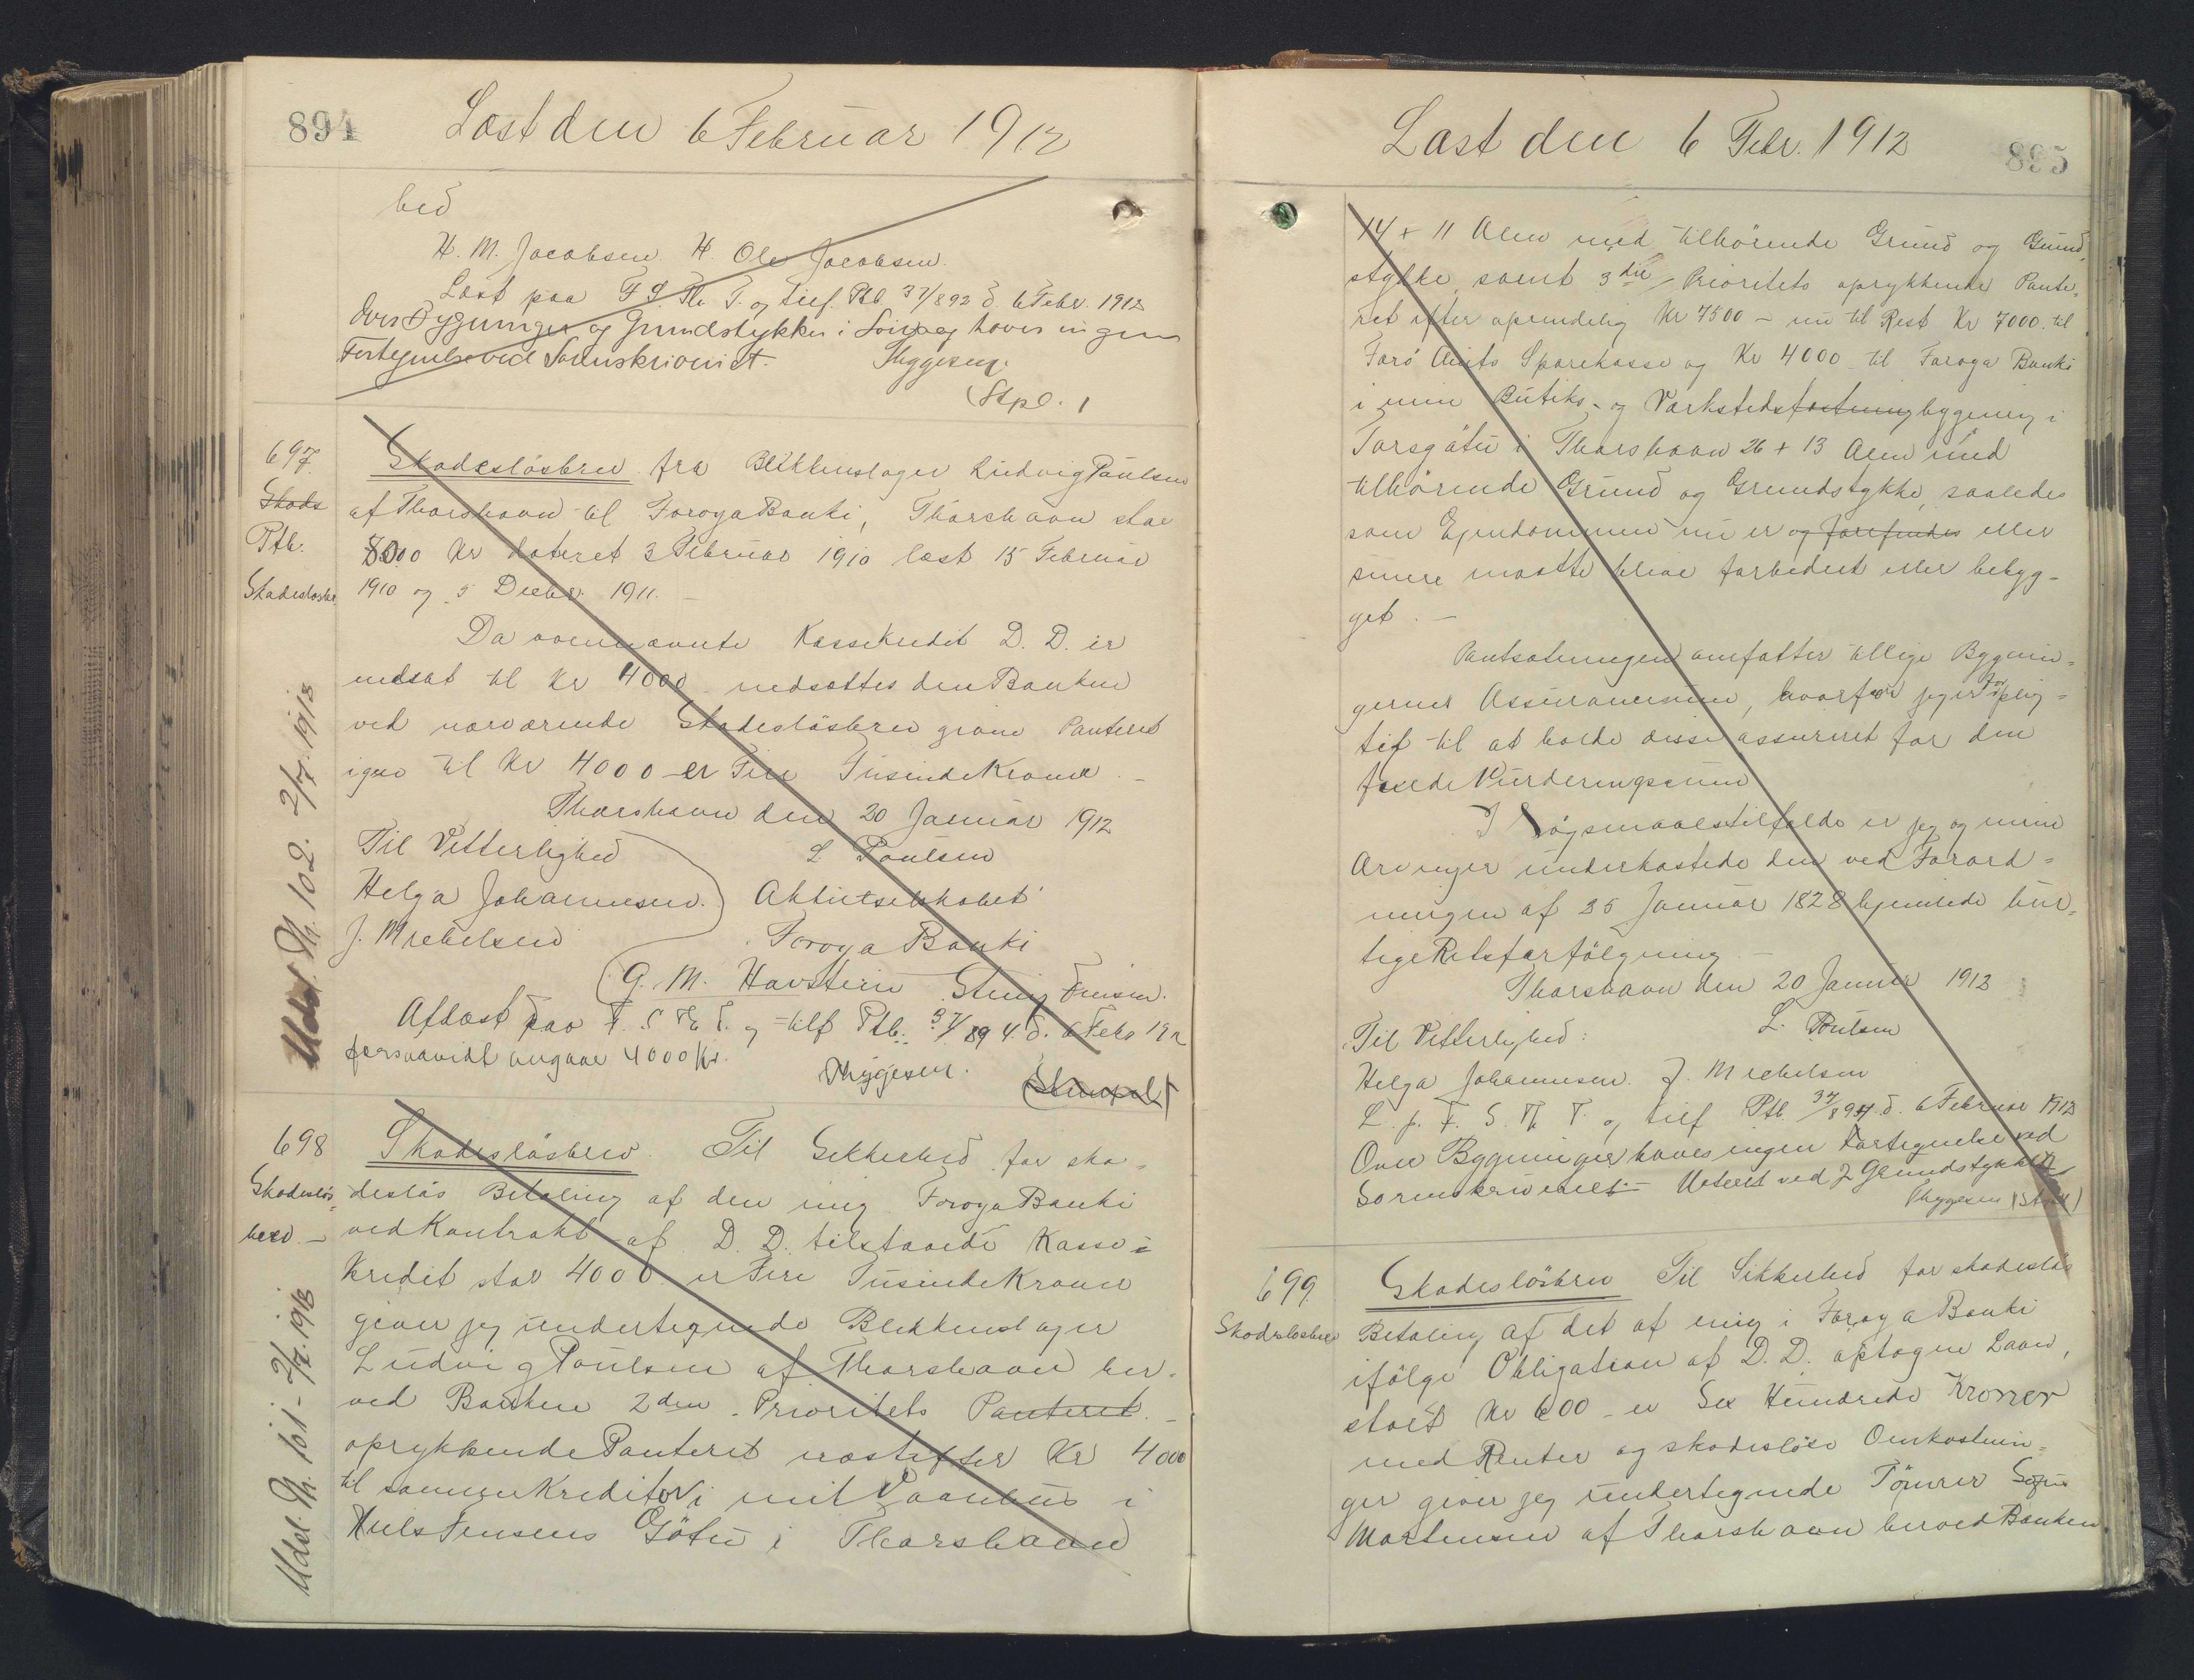 894
Læst den 6 Februar 1912
hed
H. M. Jacobsen. H. Ole Jacobsen.
Læst paa F S. Th. T. og tilf. Ptb. 37/892 d. 6 Febr. 1912
Over Bygninger og Grundstykker i haves ingen
Fortegnelse ved Sorenskriveriet. Thygesen.
(Stpl.
697
Skads
Ptb.
Skadesløsbr.
Skadesløsbrev fra Blikkenslager Ludvig Poulsen
af Thorshavn til Foroya Banki, Thorshavn stor
8000 Kr dateret 3 Februar 1910 læst 15 Februar
1910 og 5 Decbr. 1911. –
Da ovennævnte Kassekredit D. D. er
nedsat til Kr 4000 nedsættes den Banken
ved nærværende Skadesløsbrev givne Panteret
igen til Kr 4000 – er Fire Tusinde Kroner. –
Thorshavn den 20 Januar 1912
Til Vitterlighed L Poulsen
Helga Johannesen. Aktieselskabet
J. Mikkelsen Foroya Banki
G. M. Havsteen
Aflæst paa F. S. Th. T. og tilf Ptb. 37/894. d. 6 Febr 1912
forsaavidt angaar 4000 Kr. Thygesen. (Stempel)
Udsl. Th. 102. 2/7. 1918
698
Skadesløs=
brev. –
Skadesløsbrev. Til Sikkerhed for ska=
desløs Betaling af den mig Foroya Banki
ved Kontrakt af D. D. tilstaaede Kasse=
Kredit stor 4000. er Fire Tusinde Kroner
giver jeg undertegnede Blikkenslager
Ludvig Poulsen af Thorshavn her=
ved Banken 2den Prioritets Panteret –
oprykkende Panteret næstefter Kr 4000
til samme Kreditor i mit Vaanhus i
Niels Finsens Götu i Thorshavn
Udsl. Th. 101 – 2/7. 1918
Læst den 6 Febr. 1912
895
14 + 11 Alen med tilhörende Grund og Grund,
stykke, samt 3die Prioritets oprykkende Pante,
ret efter oprindelig Kr 7500 – nu til Rest Kr 7000. til
Farö Amts Sparekasse og Kr 4000 til Foroya Banki
i min Butiks- og Værksteds bygning i
Torsgötu i Thorshavn 26 + 13 Alen med
tilhörende Grund og Grundstykke, saaledes
som Ejendommen nu er og forefindes eller
senere maatte blive forbedret eller bebyg-
get. –
Pantsætningen omfatter tillige Bygnin=
gernes Assurancesum, hvorfor jeg er forplig=
tet til at holde disse assureret for den
fulde Vurderingssum
I Sögsmaalstilfælde er jeg og mine
Arvinger underkastede den ved Forord=
ningen af 25 Januar 1828 hjemlede hur=
tige Retsforfölgning –
Thorshavn den 20 Januar 1912
Til Vitterlighed: L. Poulsen
Helga Johannesen. J. Mikkelsen
L. p. F. S. Th T. og tilf Ptb. 37/894. d. 6 Februar 1912
Over Bygninger haves ingen Fortegnelse ved
Sorenskriveriet – Noteret ved Grundstykket
Thygesen (Stpl)
699.
Skadesløsbrev
Skadeslösbrev Til Sikkerhed for skadeslös
Betaling af det af mig i Foroya Banki
ifölge Obligation af D. D. optagne Laan,
stort Kr 600 – er Sex Hundrede Kroner
med Renter og skadeslöse Omkostnin=
ger giver jeg undertegnede Tömrer
Mortensen af Thorshavn herved Banken